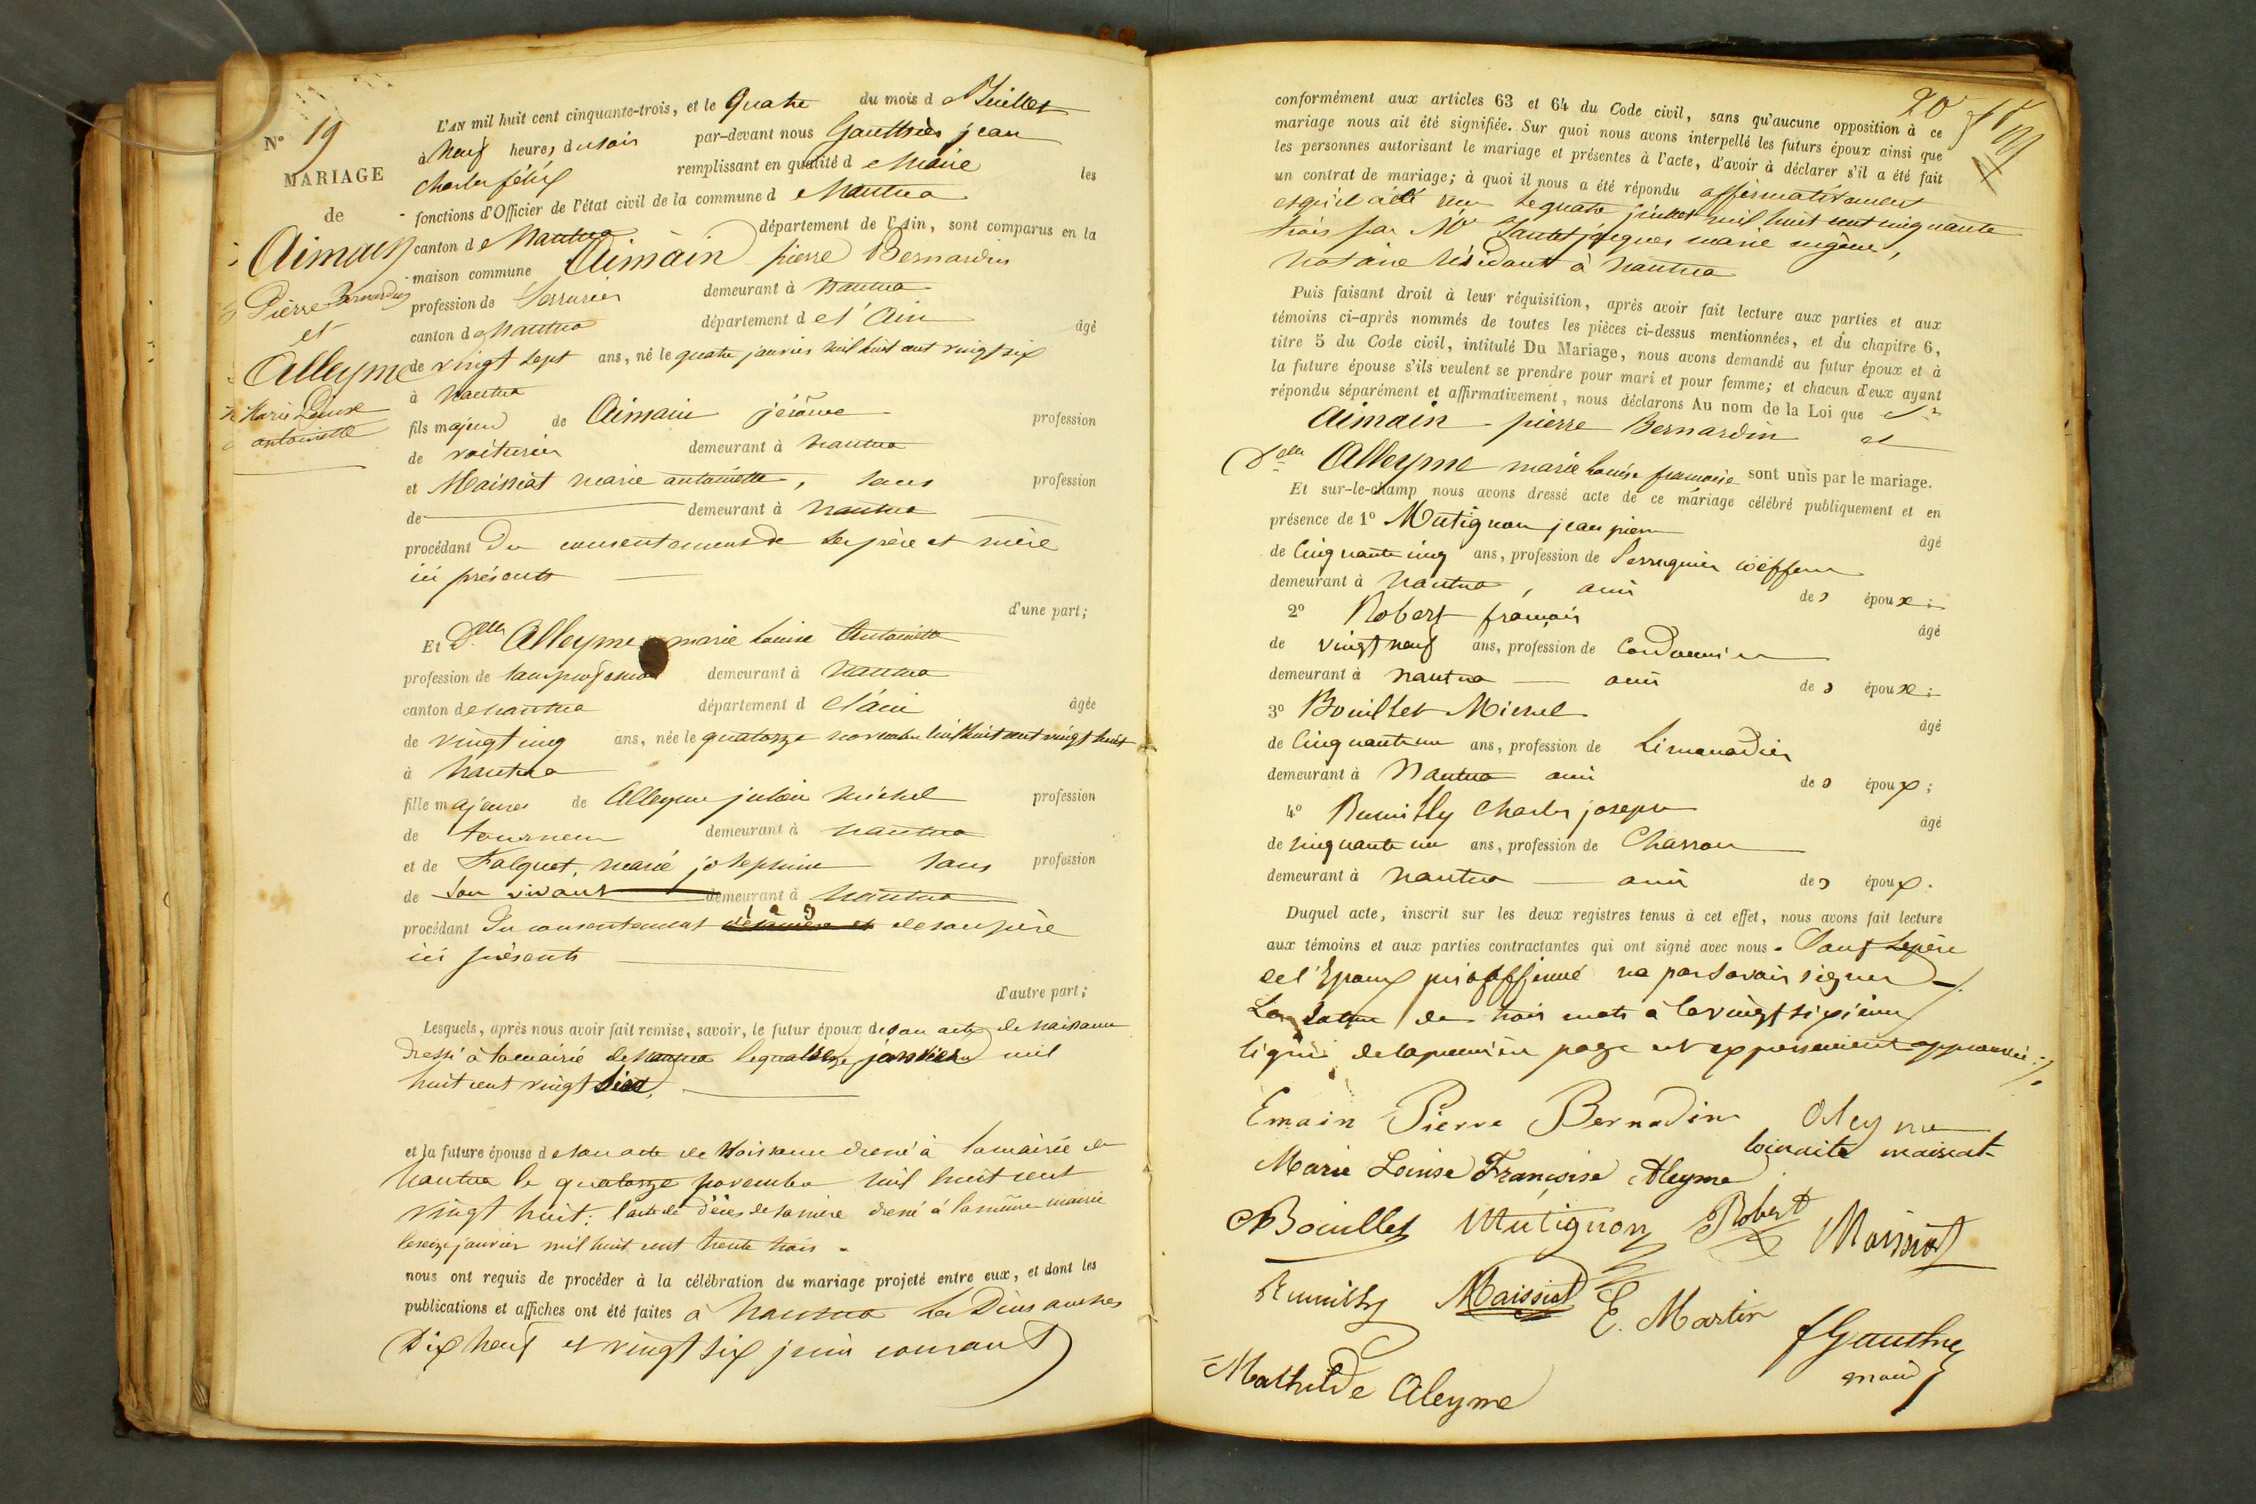 N° 19
MARIAGE
de
Aimain
Pierre Bernardin
et
Alleyme
Marie Louise
antoinette
L'AN mil huit cent cinquante-trois, et le Quatre du mois de Juillet
à Neuf heures du soir par-devant nous Gauthier jean
Charles félix remplissant en qualité de Maire les
fonctions d'Officier de l'état civil de la commune de Nantua
canton de Nantua département de l'Ain, sont comparus en la
maison commune Aimain pierre Bernardin
profession de Serrurier demeurant à Nantua
canton de Nantua département de l'Ain âgé
de vingt sept ans, né le quatre janvier mil huit cent vingt six
à Nantua
fils majeur de Aimain jérôme profession
de voiturier demeurant à nantua
et Maissiat marie antoinette, sans profession
de demeurant à Nantua
procédant du consentement de ses père et mère
ici présents
d'une part;
Et Delle Alleyme marie Louise Antoinette
profession de sans profession demeurant à Nantua
canton de nantua département de l'ain âgée
de vingt cinq ans, née le quatorze novembre mil huit cent vingt huit
à Nantua
fille majeure de Alleyme julien Michel profession
de tourneur demeurant à nantua
et de Falquet, marie josephine sans profession
de son vivant demeurant à Nantua
procédant du consentement de son père
ici présents
d'autre part;
Lesquels, après nous avoir fait remise, savoir, le futur époux de son acte de naissance
dressé à la mairie de Nantua le janvier mil
huit cent vingt
et la future épouse de son acte de Naissance dressé à la mairie de
Nantua le quatorze novembre mil huit cent
vingt huit; l'acte de décès de sa mère dressé à la même mairie
le seize janvier mil huit cent trente trois.
nous ont requis de procéder à la célébration du mariage projeté entre eux, et dont les
publications et affiches ont été faites à Nantua les Dimanches
Dix neuf et vingt six juin courant
20
conformément aux articles 63 et 64 du Code civil, sans qu'aucune opposition à ce
mariage nous ait été signifiée. Sur quoi nous avons interpellé les futurs époux ainsi que
les personnes autorisant le mariage et présentes à l'acte, d'avoir à déclarer s'il a été fait
un contrat de mariage; à quoi il nous a été répondu affirmativement
et qu'il a été reçu le quatre juillet mil huit cent cinquante
trois par Me jacques marie eugène,
Notaire résidant à Nantua
Puis faisant droit à leur réquisition, après avoir fait lecture aux parties et aux
témoins ci-après nommés de toutes les pièces ci-dessus mentionnées, et du chapitre 6,
titre 5 du Code civil, intitulé Du Mariage, nous avons demandé au futur époux et à
la future épouse s'ils veulent se prendre pour mari et pour femme; et chacun d'eux ayant
répondu séparément et affirmativement, nous déclarons Au nom de la Loi que
Aimain pierre Bernardin et
Delle Alleyme marie Louise francoise sont unis par le mariage.
Et sur-le-champ nous avons dressé acte de ce mariage célébré publiquement et en
présence de 1° Mutignon jean pierre âgé
de Cinquante cinq ans, profession de Perruquier coëffeur
demeurant à Nantua, ami des époux;
2° Robert françois âgé
de vingt neuf ans, profession de Cordonnier
demeurant à nantua ami des époux;
3° Bouillet Michel âgé
de Cinquante un ans, profession de Limonadier
demeurant à Nantua ami des époux;
4° Rumilly Charles joseph âgé
de cinquante un ans, profession de Charron
demeurant à Nantua ami des époux.
Duquel acte, inscrit sur les deux registres tenus à cet effet, nous avons fait lecture
aux témoins et aux parties contractantes qui ont signé avec nous. Sauf le père
de l'Epoux qui a affirmé ne pas savoir signer
La rature de trois mots à la vingt sixième
ligne de la première page est expressément approuvée
Emain Pierre Bernadin Aleyme
Marie Louise Françoise Aleyme toinaite maisiat
Bouillet Mutignon Robert Maissiat
Rumilly Maissiat E. Martin
Mathilde Aleyme
maire